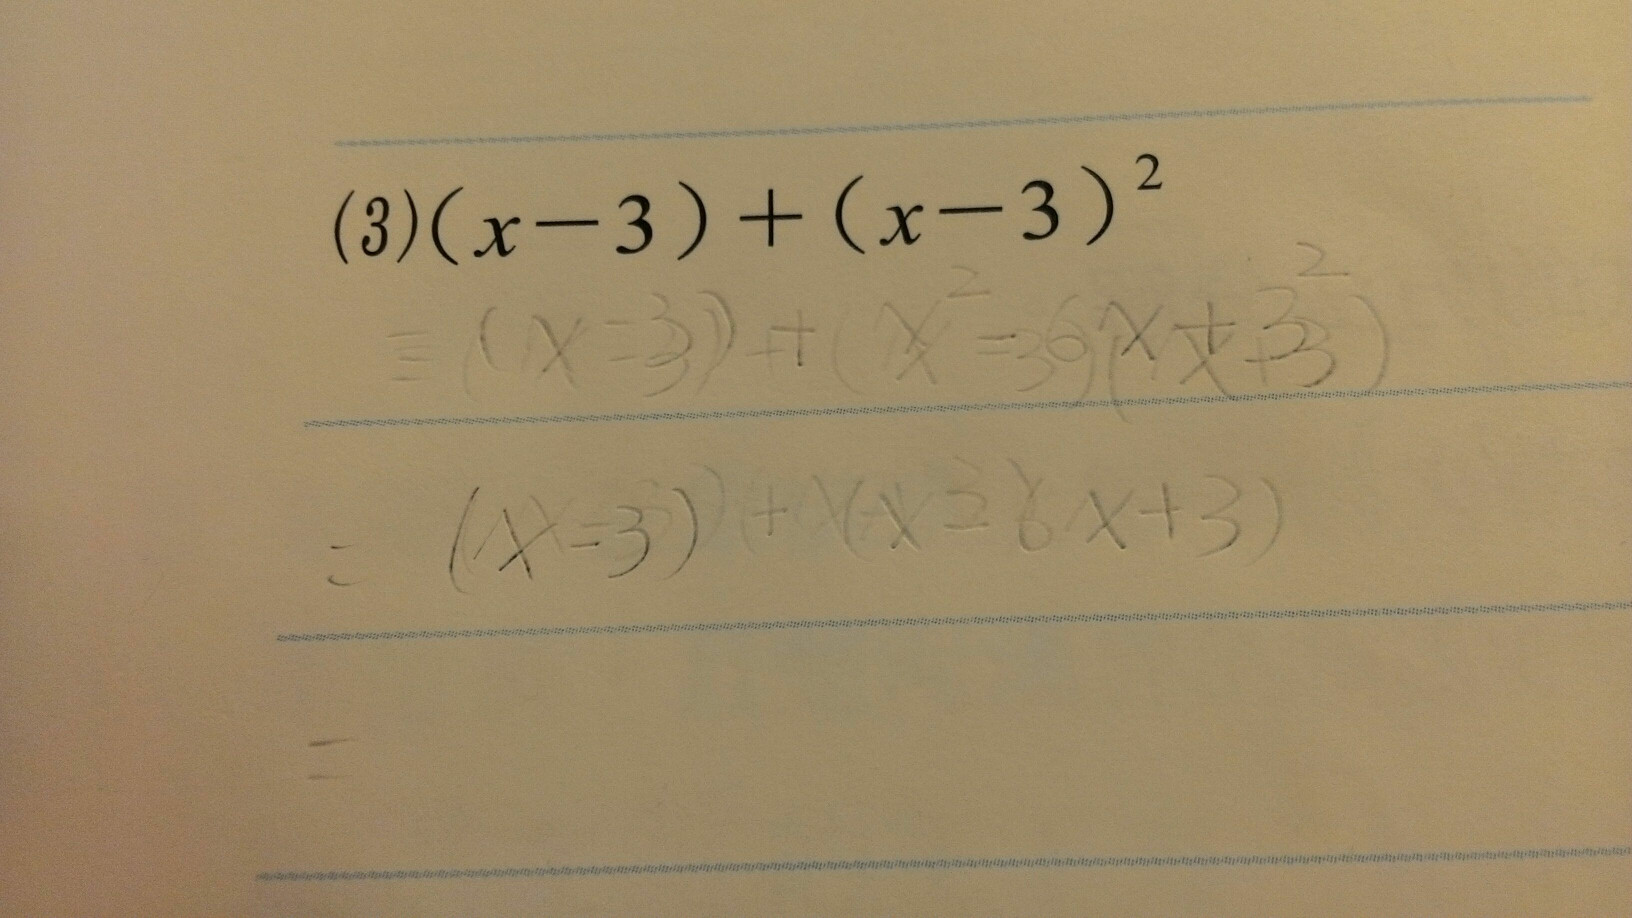 (3)(x−3)+(x−3)²
=(x-3)+(x²-6x+3²)
=(x-3)+(x²-6x+3)
=